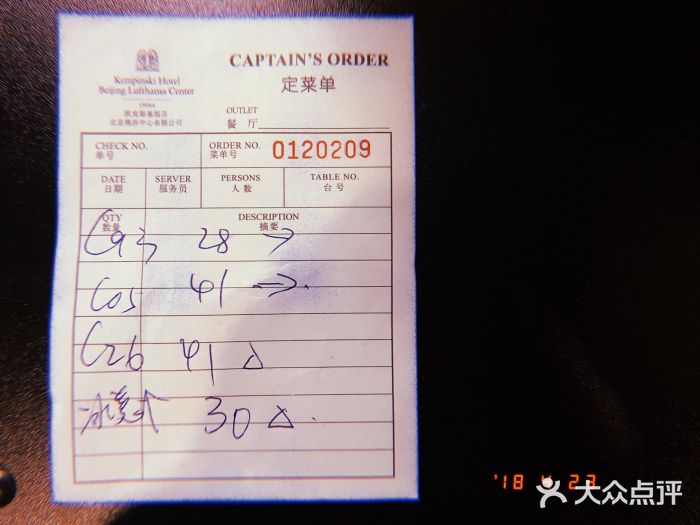 Kempinski Hotel
Beijing Lufthansa Center
CHINA
凯宾斯基饭店
北京燕莎中心有限公司
CAPTAIN'S ORDER
定菜单
OUTLET
餐厅
CHECK NO.
单号
ORDER NO.
菜单号
0120209
DATE
日期
SERVER
服务员
PERSONS
人数
TABLE NO.
台号
QTY
数量
DESCRIPTION
摘要
C93 28 →
C05 41 →
C26 41 △
冰美式 30 △
'18 4 23
大众点评